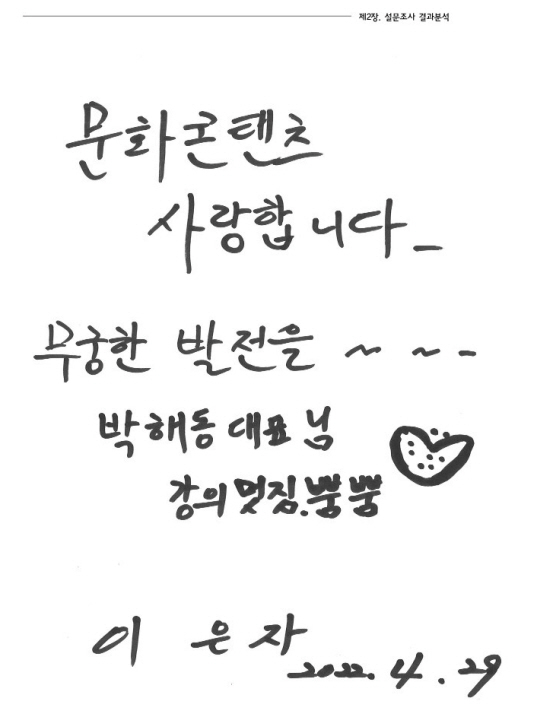 제2장. 설문조사 결과분석
문화콘텐츠
사랑합니다_
무궁한 발전을 ~ ~ -
박해동 대표님
강의 멋짐.뿜뿜
이 은 자
2022. 4. 29